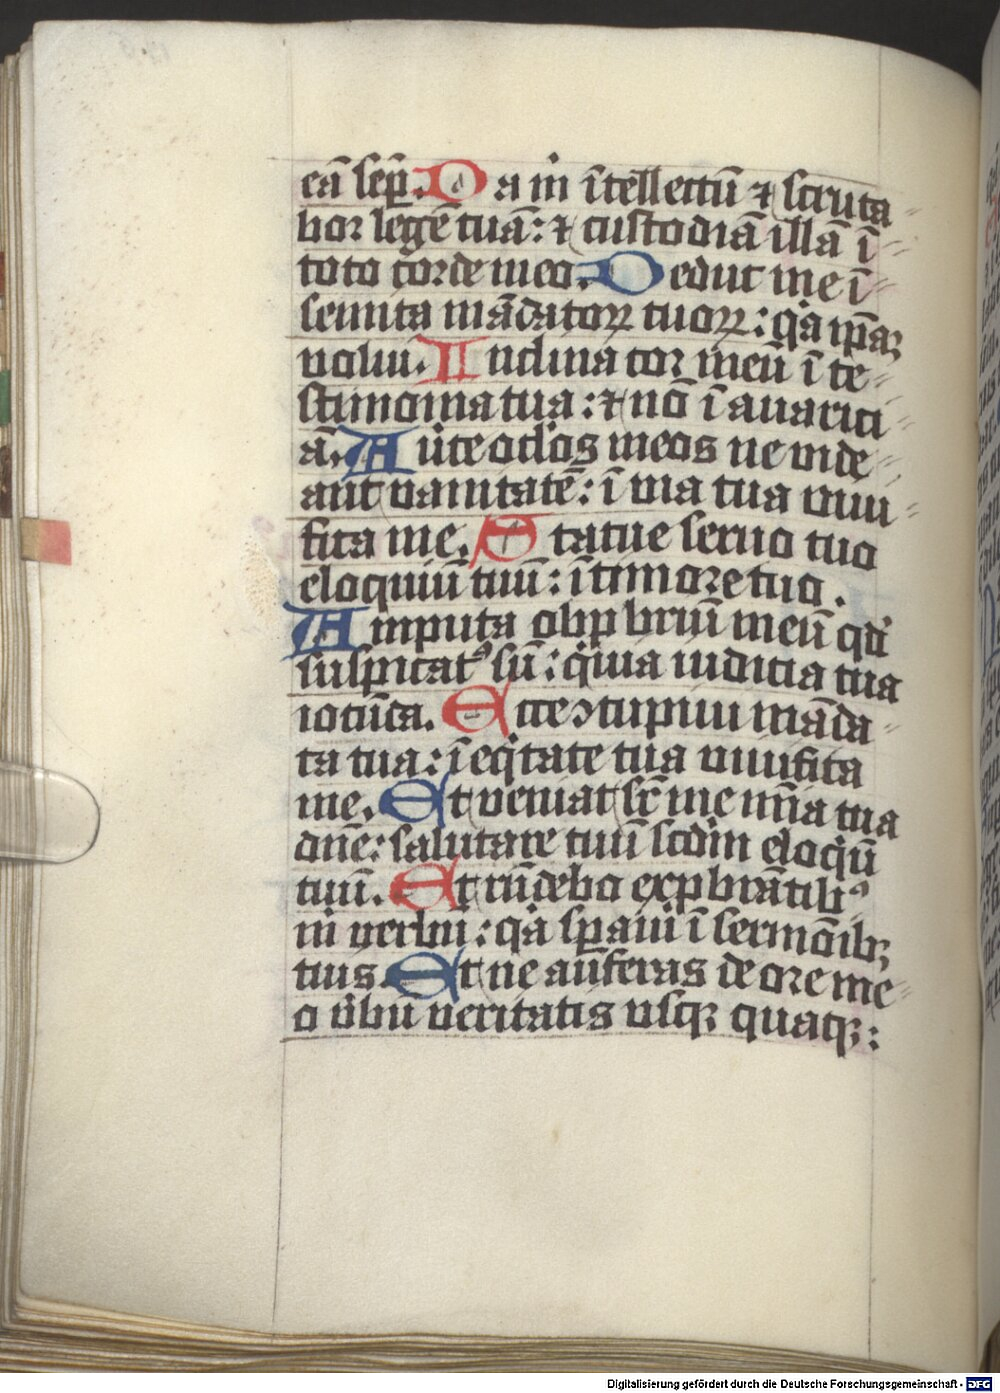 eā sep̄. Da m̄ ītellectū ⁊ scruta
bor legē tuā: ⁊ custodiā illā ī
toto corde meo. Deduc me ī
semita mādatoꝝ tuoꝝ: qͥa ip̄aꝫ
uolui. Inclina cor meū ī te
stimonia tua: ⁊ nō ī auarici
ā. Aūte oclōs meos ne vide
ant vanitatē: ī via tua viui
fica me. Statue seruo tuo
eloquiū tuū: ī timore tuo.
Amputa obp̱briū meū qd̓
suspicatꝰ sū: qͥ̄ia iudicia tua
iocūda. Ecce ꝯcupiui māda
ta tua: ī eqͥtate tua viuifica
me. Et veniat sr̄ me mīa tua
dn̄e: salutare tuū scdm̄ eloqͥū
tuū. Et rn̄debo exp̱brātibꝰ
m̄ verbū: qͥa sp̱aui ī sermōibꝫ
tuis. Et ne aufer̄as de ore me
o v̓bū veritatis vsqꝫ quaqꝫ:
Digitalisierung gefördert durch die Deutsche Forschungsgemeinschaft - DFG